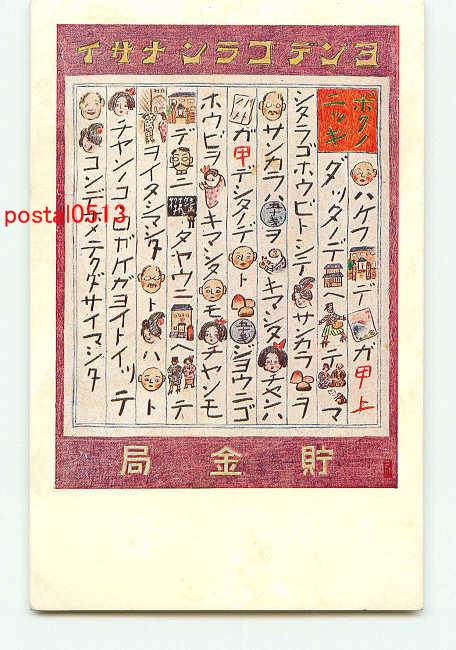 ヨンデゴランナサイ
ボクノニッキ
ハケフデガ甲上
ダッタノデヘテマ
シタラゴホウビトシテサカラヲ
サンカラヲキマシタチャンハ
ガ甲デシタノデトショウニゴ
ホウビヲキマシタモチャンモ
デニタヤウニテ
ヲイタシマシタトハト
チヤンノコロガケガヨイトイッテ
コンデホメテクダサイマシタ
貯金局
postal0513